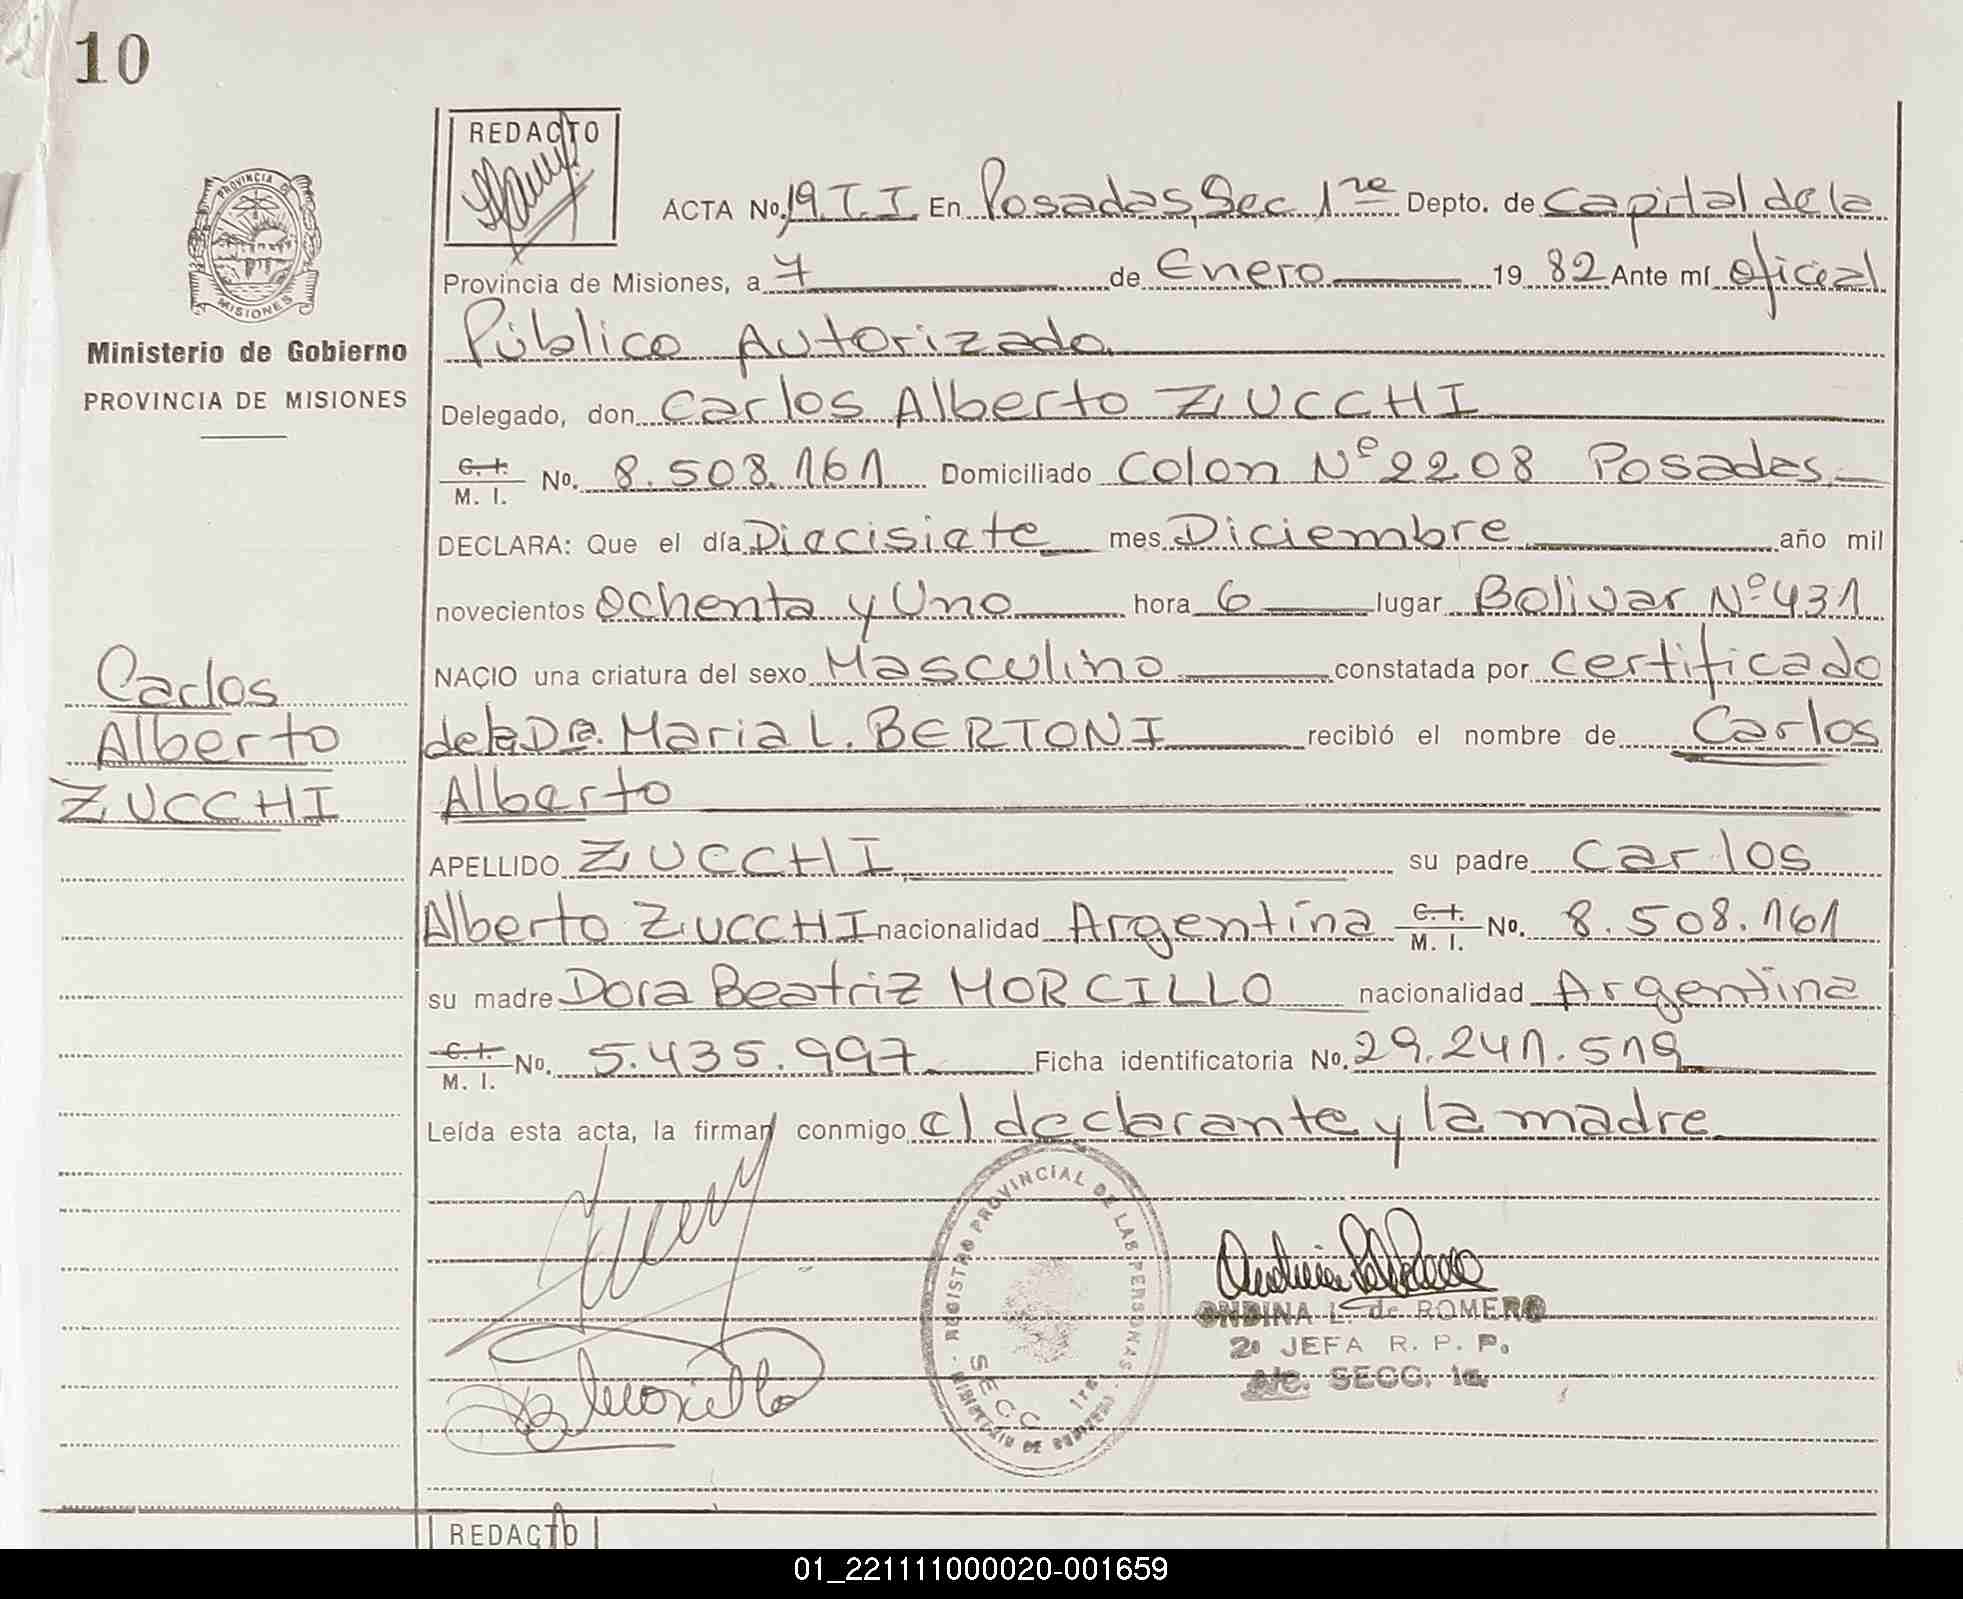 10
REDACTO
PROVINCIA DE
MISIONES
Ministerio de Gobierno
PROVINCIA DE MISIONES
ACTA No. 19.T.I En Posadas, Sec 1ra Depto. de Capital de la
Provincia de Misiones, a 7 de Enero 19 82 Ante mí Oficial
Público Autorizado
Delegado, don Carlos Alberto ZUCCHI
C. I.
M. I. No. 8.508.161 Domiciliado Colon Nº 2208 Posadas
DECLARA: Que el día Diecisiete mes Diciembre año mil
novecientos Ochenta y Uno hora 6 lugar Bolivar Nº 431
NACIO una criatura del sexo Masculino constatada por certificado
de la Dra. Maria L. BERTONI recibió el nombre de Carlos
Alberto
APELLIDO ZUCCHI su padre Carlos
Alberto ZUCCHI nacionalidad Argentina C. I.
M. I. No. 8.508.161
su madre Dora Beatriz MORCILLO nacionalidad Argentina
C. I.
M. I. No. 5.435.997 Ficha identificatoria No. 29.241.519
Leída esta acta, la firman conmigo el declarante y la madre
Carlos
Alberto
ZUCCHI
REGISTRO PROVINCIAL DE LAS PERSONAS
SECC 1ra
MINISTERIO DE GOBIERNO
ONDINA L. de ROMERO
2a JEFA R. P. P.
a/c. SECC. 1a.
REDACTO
01_221111000020-001659